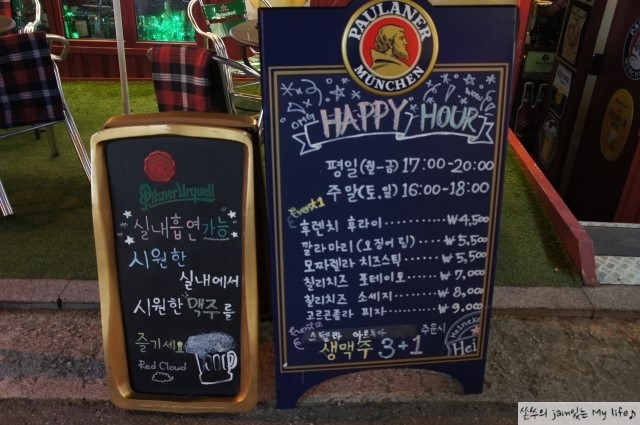 Pilsner Urquell
실내흡연가능
시원한
실내에서
시원한 맥주를
즐기세요
Red Cloud
PAULANER
MÜNCHEN
OMG
WOW
HAPPY HOUR
평일(월-금) 17:00-20:00
주말(토,일) 16:00-18:00
Event1
후렌치 후라이 ₩4,500
깔라마리(오징어 링) ₩5,500
모짜렐라 치즈스틱 ₩5,500
칠리치즈 포테이토 ₩7,000
칠리치즈 소세지 ₩8,000
고르곤졸라 피자 ₩9,000
Event2
스텔라 아르투아 주문시
생맥주 3+1
Heineken
Hei
쏘쑤의 jam있는 My life♪